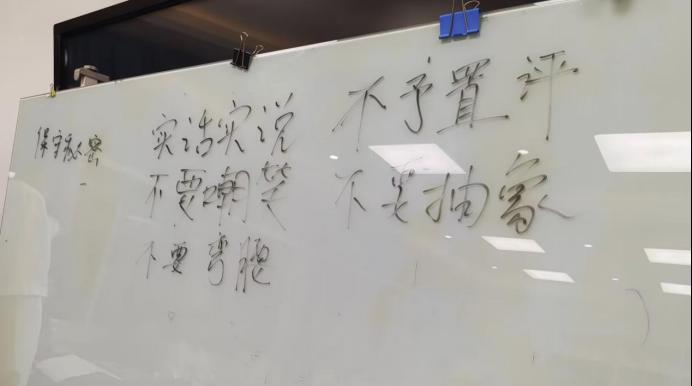 保守秘密
实话实说
不要嘲笑
不要弯腿
不予置评
不要抽象